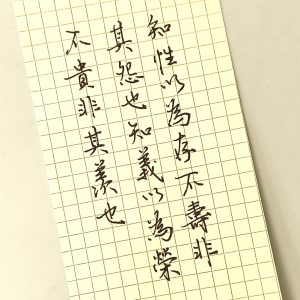 知性以為存不壽非
其怨也知義以為榮
不貴非其羨也